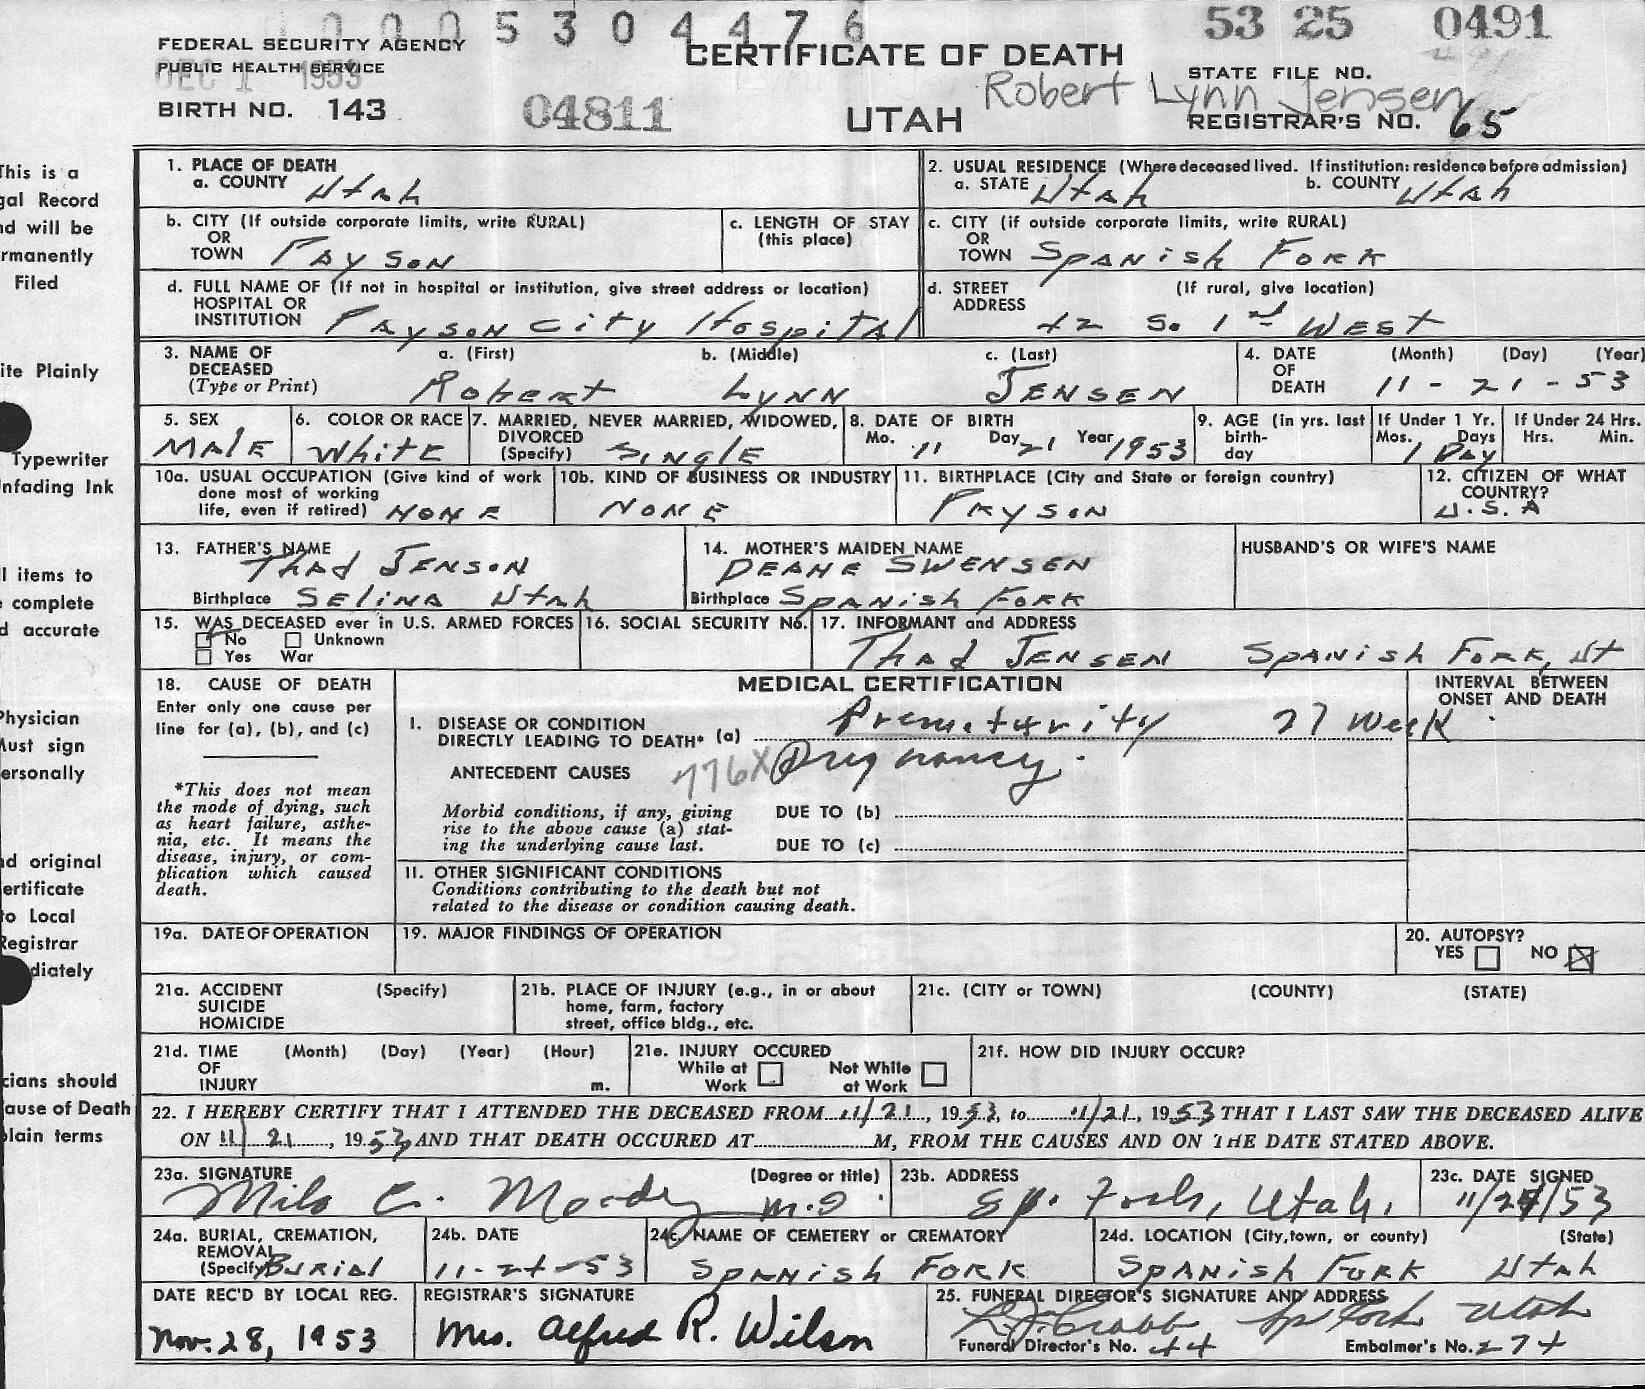 0 0 0 5 3 0 4 4 7 6
53 25 0491
FEDERAL SECURITY AGENCY
PUBLIC HEALTH SERVICE
DEC 1 1953
BIRTH NO. 143
04811
CERTIFICATE OF DEATH
UTAH
Robert Lynn Jensen
STATE FILE NO.
REGISTRAR'S NO. 65
This is a
gal Record
nd will be
rmanently
Filed
ite Plainly
Typewriter
nfading Ink
l items to
complete
d accurate
Physician
Must sign
ersonally
nd original
ertificate
to Local
Registrar
diately
cians should
ause of Death
plain terms
1. PLACE OF DEATH
a. COUNTY Utah
2. USUAL RESIDENCE (Where deceased lived. If institution: residence before admission)
a. STATE Utah b. COUNTY Utah
b. CITY (If outside corporate limits, write RURAL)
OR
TOWN Payson
c. LENGTH OF STAY
(this place)
c. CITY (if outside corporate limits, write RURAL)
OR
TOWN Spanish Fork
d. FULL NAME OF (If not in hospital or institution, give street address or location)
HOSPITAL OR
INSTITUTION Payson City Hospital
d. STREET (If rural, give location)
ADDRESS 42 So. 1st West
3. NAME OF a. (First) b. (Middle) c. (Last)
DECEASED
(Type or Print) Robert Lynn Jensen
4. DATE (Month) (Day) (Year)
OF
DEATH 11-21-53
5. SEX
Male
6. COLOR OR RACE
White
7. MARRIED, NEVER MARRIED, WIDOWED,
DIVORCED
(Specify) Single
8. DATE OF BIRTH
Mo. 11 Day 21 Year 1953
9. AGE (in yrs. last
birth-
day
If Under 1 Yr.
Mos. Days
1 Day
If Under 24 Hrs.
Hrs. Min.
10a. USUAL OCCUPATION (Give kind of work
done most of working
life, even if retired) None
10b. KIND OF BUSINESS OR INDUSTRY
None
11. BIRTHPLACE (City and State or foreign country)
Payson
12. CITIZEN OF WHAT
COUNTRY?
U.S.A
13. FATHER'S NAME
Thad Jenson
Birthplace Selina Utah
14. MOTHER'S MAIDEN NAME
Deane Swensen
Birthplace Spanish Fork
HUSBAND'S OR WIFE'S NAME
15. WAS DECEASED ever in U.S. ARMED FORCES
No Unknown
Yes War
16. SOCIAL SECURITY No.
17. INFORMANT and ADDRESS
Thad Jensen Spanish Fork, Ut
18. CAUSE OF DEATH
Enter only one cause per
line for (a), (b), and (c)
*This does not mean
the mode of dying, such
as heart failure, asthe-
nia, etc. It means the
disease, injury, or com-
plication which caused
death.
MEDICAL CERTIFICATION
INTERVAL BETWEEN
ONSET AND DEATH
I. DISEASE OR CONDITION
DIRECTLY LEADING TO DEATH* (a) Prematurity 27 week
ANTECEDENT CAUSES 776X Pregnancy.
Morbid conditions, if any, giving
rise to the above cause (a) stat-
ing the underlying cause last.
DUE TO (b)
DUE TO (c)
II. OTHER SIGNIFICANT CONDITIONS
Conditions contributing to the death but not
related to the disease or condition causing death.
19a. DATE OF OPERATION
19. MAJOR FINDINGS OF OPERATION
20. AUTOPSY?
YES NO
21a. ACCIDENT (Specify)
SUICIDE
HOMICIDE
21b. PLACE OF INJURY (e.g., in or about
home, farm, factory
street, office bldg., etc.
21c. (CITY or TOWN) (COUNTY) (STATE)
21d. TIME (Month) (Day) (Year) (Hour)
OF
INJURY m.
21e. INJURY OCCURED
While at Not While
Work at Work
21f. HOW DID INJURY OCCUR?
22. I HEREBY CERTIFY THAT I ATTENDED THE DECEASED FROM 11/21, 1953, to 11/21, 1953 THAT I LAST SAW THE DECEASED ALIVE
ON 11/21, 1953 AND THAT DEATH OCCURED AT M, FROM THE CAUSES AND ON THE DATE STATED ABOVE.
23a. SIGNATURE (Degree or title)
Milo C. Moody M.D.
23b. ADDRESS
Sp. Fork, Utah.
23c. DATE SIGNED
11/24/53
24a. BURIAL, CREMATION,
REMOVAL
(Specify) Burial
24b. DATE
11-24-53
24c. NAME OF CEMETERY or CREMATORY
Spanish Fork
24d. LOCATION (City, town, or county) (State)
Spanish Fork Utah
DATE REC'D BY LOCAL REG.
Nov. 28, 1953
REGISTRAR'S SIGNATURE
Mrs. Alfred R. Wilson
25. FUNERAL DIRECTOR'S SIGNATURE AND ADDRESS
Sp Fork Utah
Funeral Director's No. 44 Embalmer's No. 274